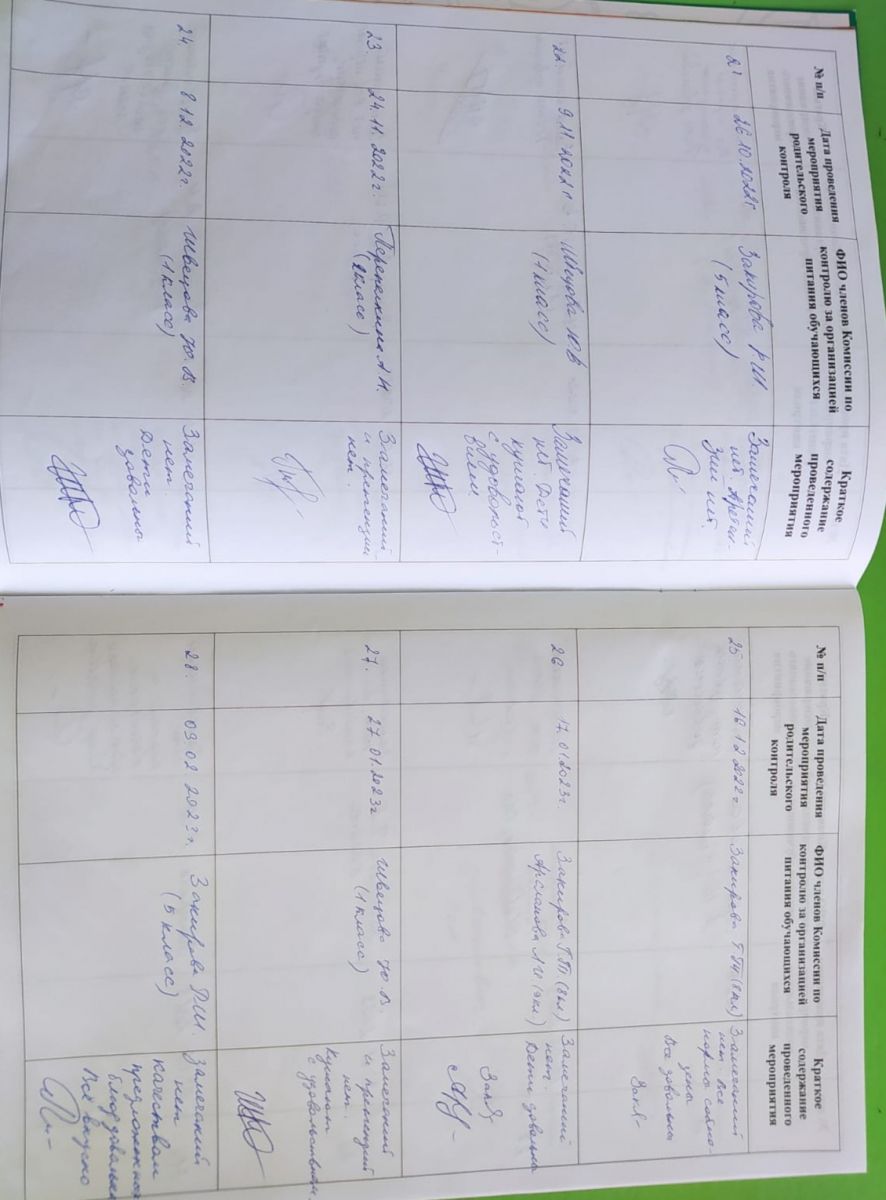 № п/п
Дата проведения
мероприятия
родительского
контроля
ФИО членов Комиссии по
контролю за организацией
питания обучающихся
Краткое
содержание
проведенного
мероприятия
21
26.10.2022г
Закирова Р.Ш
(5 класс)
Замечаний
нет. Претен-
зий нет.
22.
9.11.2022г
Швецова Ю.В
(1 класс)
Замечаний
нет. Дети
кушают
с удовольст-
вием
23.
24.11.2022г.
А.И.
Замечаний
и претензий
нет.
24.
8.12.2022г.
Швецова Ю.В.
(1 класс)
Замечаний
нет.
Дети
довольно
№ п/п
Дата проведения
мероприятия
родительского
контроля
ФИО членов Комиссии по
контролю за организацией
питания обучающихся
Краткое
содержание
проведенного
мероприятия
25
16.12.2022г
Закирова (8кл)
Замечаний
нет. Все
нормы соблю-
дены
Все довольны
26
17.01.2023г.
Закирова (8кл)
Арсланова
Замечаний
нет.
Дети довольны
27.
27.01.2023г
Швецова Ю.В.
(1 класс)
Замечаний
и претензий
нет.
Кушают
с удовольствием.
28.
03.02.2023г.
Закирова Р.Ш.
(5 класс)
Замечаний
нет
качеством
предложенной
блюд довольны
Всё вкусно